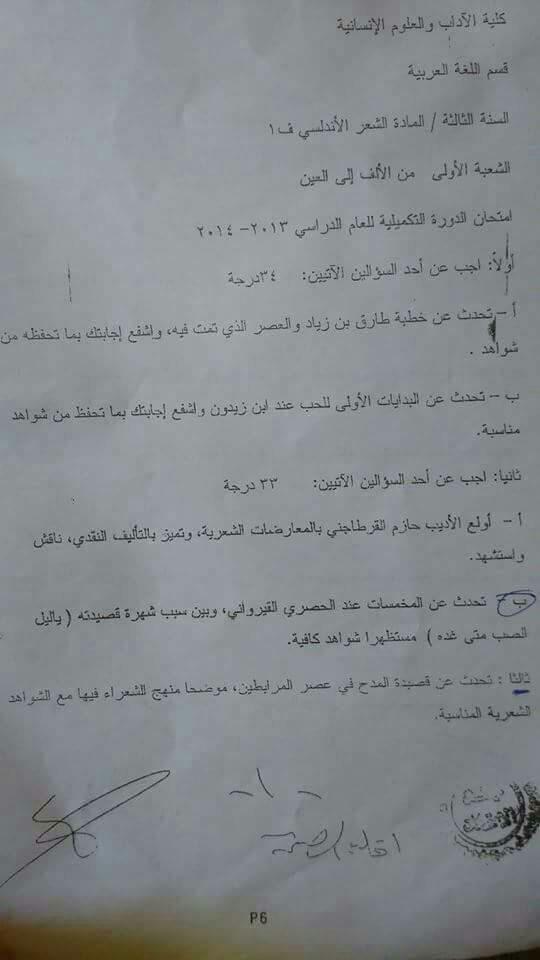 كلية الآداب والعلوم الإنسانية
قسم اللغة العربية
السنة الثالثة / المادة الشعر الأندلسي ف١
الشعبة الأولى من الألف إلى العين
امتحان الدورة التكميلية للعام الدراسي ٢٠١٣-٢٠١٤
أولاً: اجب عن أحد السؤالين الآتيين: ٣٤درجة
أ – تحدث عن خطبة طارق بن زياد والعصر الذي تمت فيه، واشفع إجابتك بما تحفظه من
شواهد .
ب – تحدث عن البدايات الأولى للحب عند ابن زيدون واشفع إجابتك بما تحفظ من شواهد
مناسبة.
ثانيا: اجب عن أحد السؤالين الآتيين: ٣٣ درجة
أ – أولع الأديب حازم القرطاجني بالمعارضات الشعرية، وتميز بالتأليف النقدي، ناقش
واستشهد.
ب – تحدث عن المخمسات عند الحصري القيرواني، وبين سبب شهرة قصيدته ( ياليل
الصب متى غده ) مستظهرا شواهد كافية.
ثالثا : تحدث عن قصيدة المدح في عصر المرابطين، موضحا منهج الشعراء فيها مع الشواهد
الشعرية المناسبة.
- ١ -
P6